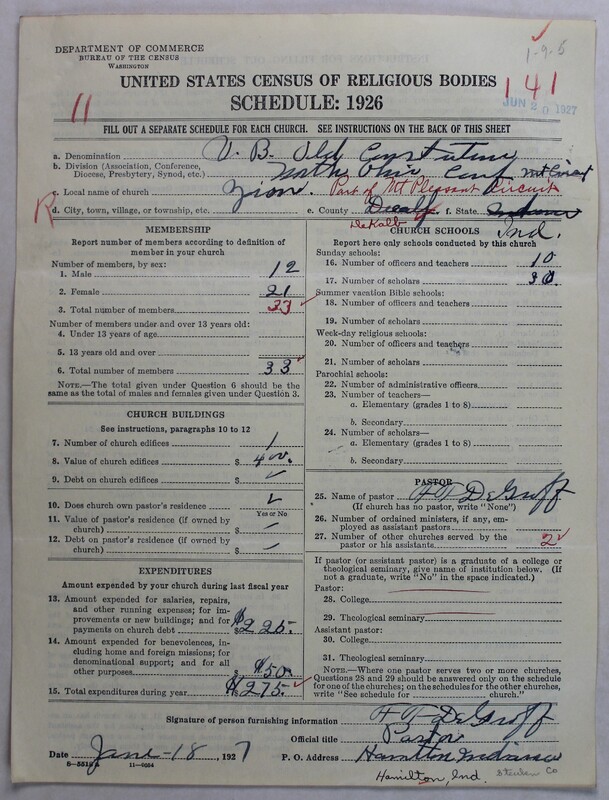 DEPARTMENT OF COMMERCE
BUREAU OF THE CENSUS
WASHINGTON
1-9-5
UNITED STATES CENSUS OF RELIGIOUS BODIES
141
11
SCHEDULE: 1926
JUN 20 1927
FILL OUT A SEPARATE SCHEDULE FOR EACH CHURCH. SEE INSTRUCTIONS ON THE BACK OF THIS SHEET
a. Denomination U. B. Old Constitution
b. Division (Association, Conference, Diocese, Presbytery, Synod, etc.) North Ohio Conf
c. Local name of church Zion. Part of Mt Pleasant Circuit
R
d. City, town, village, or township, etc. e. County f. State Indiana
DeKalb Ind.
MEMBERSHIP
Report number of members according to definition of member in your church
Number of members, by sex:
1. Male 12
2. Female 21
3. Total number of members 33
Number of members under and over 13 years old:
4. Under 13 years of age
5. 13 years old and over
6. Total number of members 33
NOTE.—The total given under Question 6 should be the same as the total of males and females given under Question 3.
CHURCH BUILDINGS
See instructions, paragraphs 10 to 12
7. Number of church edifices 1
8. Value of church edifices $ 400.
9. Debt on church edifices $
10. Does church own pastor's residence
Yes or No
11. Value of pastor's residence (if owned by church) $
12. Debt on pastor's residence (if owned by church) $
EXPENDITURES
Amount expended by your church during last fiscal year
13. Amount expended for salaries, repairs, and other running expenses; for improvements or new buildings; and for payments on church debt $225.
14. Amount expended for benevolences, including home and foreign missions; for denominational support; and for all other purposes $50.
15. Total expenditures during year $275.
CHURCH SCHOOLS
Report here only schools conducted by this church
Sunday schools:
16. Number of officers and teachers 10
17. Number of scholars 30
Summer vacation Bible schools:
18. Number of officers and teachers
19. Number of scholars
Week-day religious schools:
20. Number of officers and teachers
21. Number of scholars
Parochial schools:
22. Number of administrative officers
23. Number of teachers—
a. Elementary (grades 1 to 8)
b. Secondary
24. Number of scholars—
a. Elementary (grades 1 to 8)
b. Secondary
PASTOR
25. Name of pastor DeGroff
(If church has no pastor, write "None")
26. Number of ordained ministers, if any, employed as assistant pastors
27. Number of other churches served by the pastor or his assistants 2
If pastor (or assistant pastor) is a graduate of a college or theological seminary, give name of institution below. (If not a graduate, write "No" in the space indicated.)
Pastor:
28. College
29. Theological seminary
Assistant pastor:
30. College
31. Theological seminary
NOTE.—Where one pastor serves two or more churches, Questions 28 and 29 should be answered only on the schedule for one of the churches; on the schedules for the other churches, write "See schedule for church."
Signature of person furnishing information DeGroff
Official title Pastor
Date June-18, 1927 P. O. Address Hamilton Indiana
8—5518 a 11—9054
Hamilton, Ind. Steuben Co